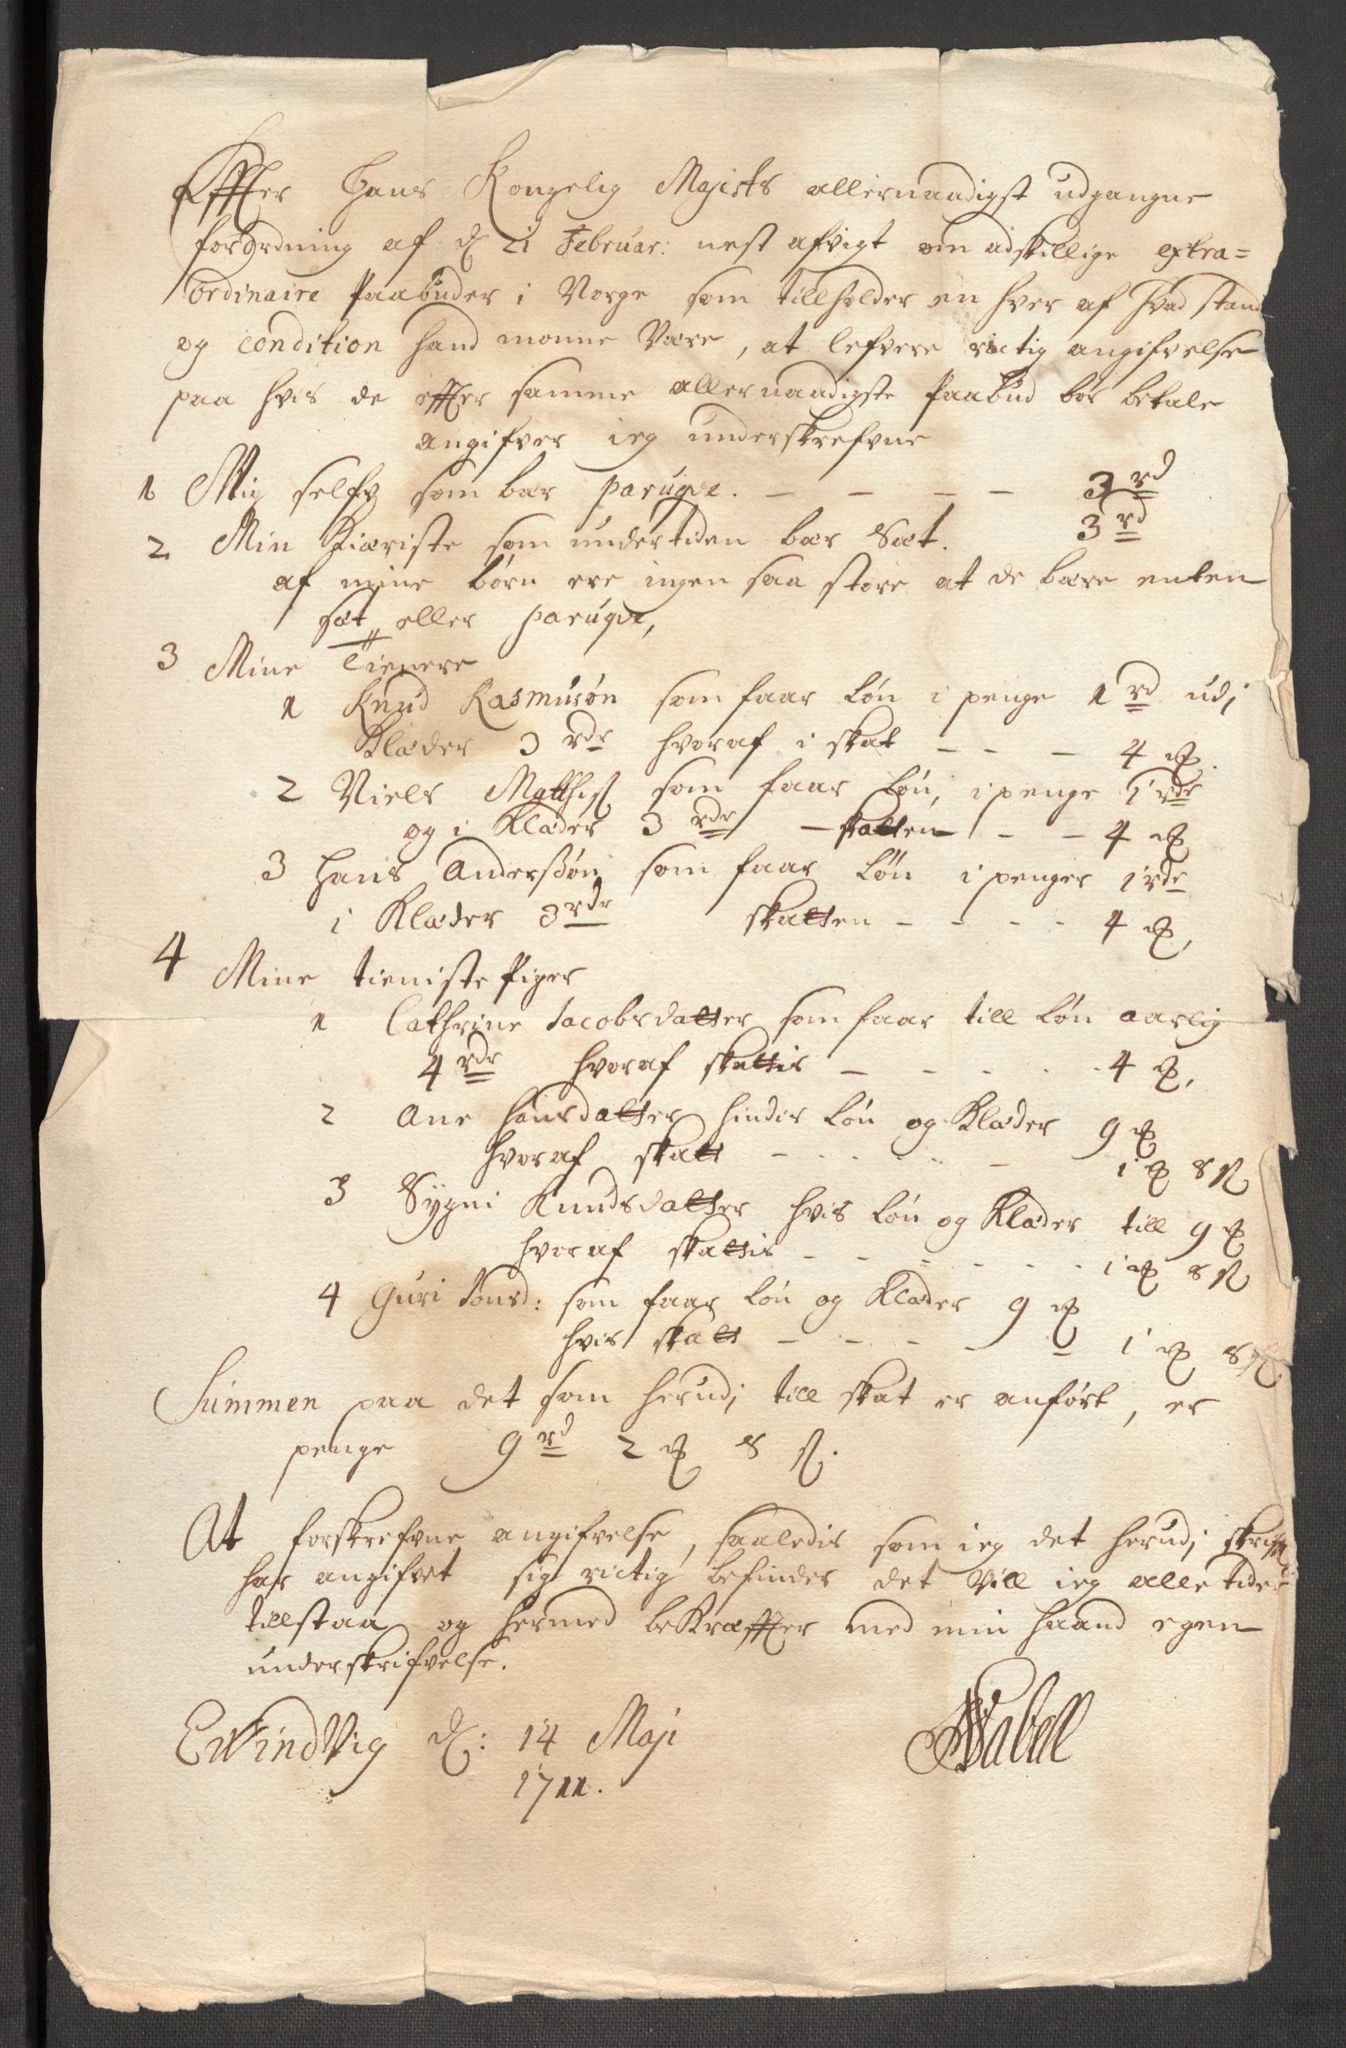 Effter Hans Kongelig Majests allernaadigst udgangne
forordning af d 21 Februar: nest afvigt om adskillige extra=
ordinaire Paabuder i Norge som tillholder en hver af hvad stand
og condition hand monne Være, at lefvere rictig angifvelse
paa hvis de effter samme allernaadigste Paabud bør betale
angifver ieg underskrefvne
1 Mig selfv som bær paruqve. - - - - 3 rd
2 Min Kiæriste som undertiden bær Sæt. 3 rd
af mine børn ere ingen saa store at de bære enten
sæt eller paruqve,
3 Mine Tienere
1 Knud Rasmusøn som faar løn i penge 1 rd udj
Klæder 3 rdr hvoraf i skat - - - 4 ℔.
2 Niels Matthiß som faar løn, i penge 1 rdr
og i Klæder 3 rdr - skatten - - 4 ℔
3 Hans Anderßøn som faar løn i penger 1 rdr
i Klæder 3 rdr skatten - - - - 4 ℔,
4 Mine tieniste Piger
1 Cathrine Jacobsdatter som faar till løn aarlig
4 rdr hvoraf skattis - - - - - 4 ℔,
2 Ane Hansdatter hindis løn og Klæder 9 ℔
hvoraf skatt - - - - - - 1 ℔ 8 ß
3 Sygni Knudsdatter hvis løn og Klæder till 9 ℔
hvoraf skattis - - - - - - 1 ℔ 8 ß
4 Guri Jonsd: som faar løn og Klæder 9 ℔
hvis skatt - - - - - 1 ℔ 8 ß
Summen paa det som herudj till skat er anført, er
penge 9 rd 2 ℔ 8 ß.
At forskrefvne angifvelse, saaledis som ieg det herudj
har angifvet sig rictig befinder det Vill ieg alle tider
tillstaa og hermed beKræffter med min haand egen
underskrifvelse.
EvindVig d: 14 Maji
1711.